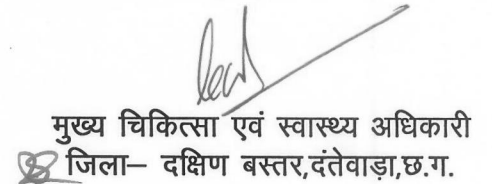 मुख्य चिकित्सा एवं स्वास्थ्य अधिकारी
जिला– दक्षिण बस्तर,दंतेवाड़ा,छ.ग.